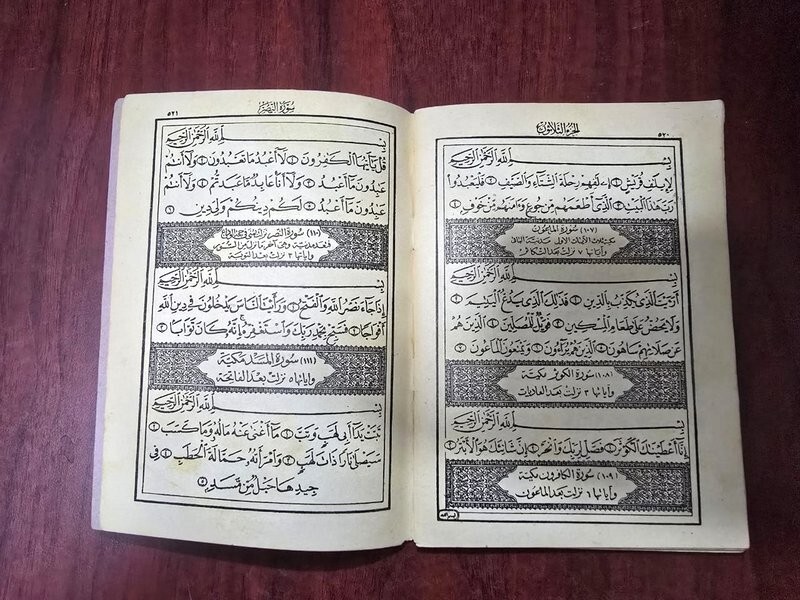 ٥٢٠
الجزء الثلاثون
بِسْمِ اللَّهِ الرَّحْمَٰنِ الرَّحِيمِ
لِإِيلَٰفِ قُرَيْشٍ ١ إِۦلَٰفِهِمْ رِحْلَةَ الشِّتَاءِ وَالصَّيْفِ ٢ فَلْيَعْبُدُوا
رَبَّ هَٰذَا الْبَيْتِ ٣ الَّذِي أَطْعَمَهُم مِّن جُوعٍ وَآمَنَهُم مِّنْ خَوْفٍ ٤
(١٠٧) سورة الماعون
مكية ثلاث الآيات الأولى مدنية الباقي
وآياتها ٧ نزلت بعد التكاثر
بِسْمِ اللَّهِ الرَّحْمَٰنِ الرَّحِيمِ
أَرَءَيْتَ الَّذِي يُكَذِّبُ بِالدِّينِ ١ فَذَٰلِكَ الَّذِي يَدُعُّ الْيَتِيمَ ٢
وَلَا يَحُضُّ عَلَىٰ طَعَامِ الْمِسْكِينِ ٣ فَوَيْلٌ لِّلْمُصَلِّينَ ٤ الَّذِينَ هُمْ
عَن صَلَاتِهِمْ سَاهُونَ ٥ الَّذِينَ هُمْ يُرَاءُونَ ٦ وَيَمْنَعُونَ الْمَاعُونَ ٧
(١٠٨) سورة الكوثر مكية
وآياتها ٣ نزلت بعد العاديات
بِسْمِ اللَّهِ الرَّحْمَٰنِ الرَّحِيمِ
إِنَّا أَعْطَيْنَٰكَ الْكَوْثَرَ ١ فَصَلِّ لِرَبِّكَ وَانْحَرْ ٢ إِنَّ شَانِئَكَ هُوَ الْأَبْتَرُ ٣
(١٠٩) سورة الكافرون مكية
وآياتها ٦ نزلت بعد الماعون
سورة النصر
٥٢١
بِسْمِ اللَّهِ الرَّحْمَٰنِ الرَّحِيمِ
قُلْ يَٰأَيُّهَا الْكَٰفِرُونَ ١ لَا أَعْبُدُ مَا تَعْبُدُونَ ٢ وَلَا أَنتُمْ
عَٰبِدُونَ مَا أَعْبُدُ ٣ وَلَا أَنَا عَابِدٌ مَّا عَبَدتُّمْ ٤ وَلَا أَنتُمْ
عَٰبِدُونَ مَا أَعْبُدُ ٥ لَكُمْ دِينُكُمْ وَلِيَ دِينِ ٦
(١١٠) سورة النصر نزلت بمنى في حجة الوداع
فتعد مدنية وهي آخر ما نزل من السور
وآياتها ٣ نزلت بعد التوبة
بِسْمِ اللَّهِ الرَّحْمَٰنِ الرَّحِيمِ
إِذَا جَاءَ نَصْرُ اللَّهِ وَالْفَتْحُ ١ وَرَأَيْتَ النَّاسَ يَدْخُلُونَ فِي دِينِ اللَّهِ
أَفْوَاجًا ٢ فَسَبِّحْ بِحَمْدِ رَبِّكَ وَاسْتَغْفِرْهُ إِنَّهُ كَانَ تَوَّابًا ٣
(١١١) سورة المسد مكية
وآياتها ٥ نزلت بعد الفاتحة
بِسْمِ اللَّهِ الرَّحْمَٰنِ الرَّحِيمِ
تَبَّتْ يَدَا أَبِي لَهَبٍ وَتَبَّ ١ مَا أَغْنَىٰ عَنْهُ مَالُهُ وَمَا كَسَبَ ٢
سَيَصْلَىٰ نَارًا ذَاتَ لَهَبٍ ٣ وَامْرَأَتُهُ حَمَّالَةَ الْحَطَبِ ٤ فِي
جِيدِهَا حَبْلٌ مِّن مَّسَدٍ ٥